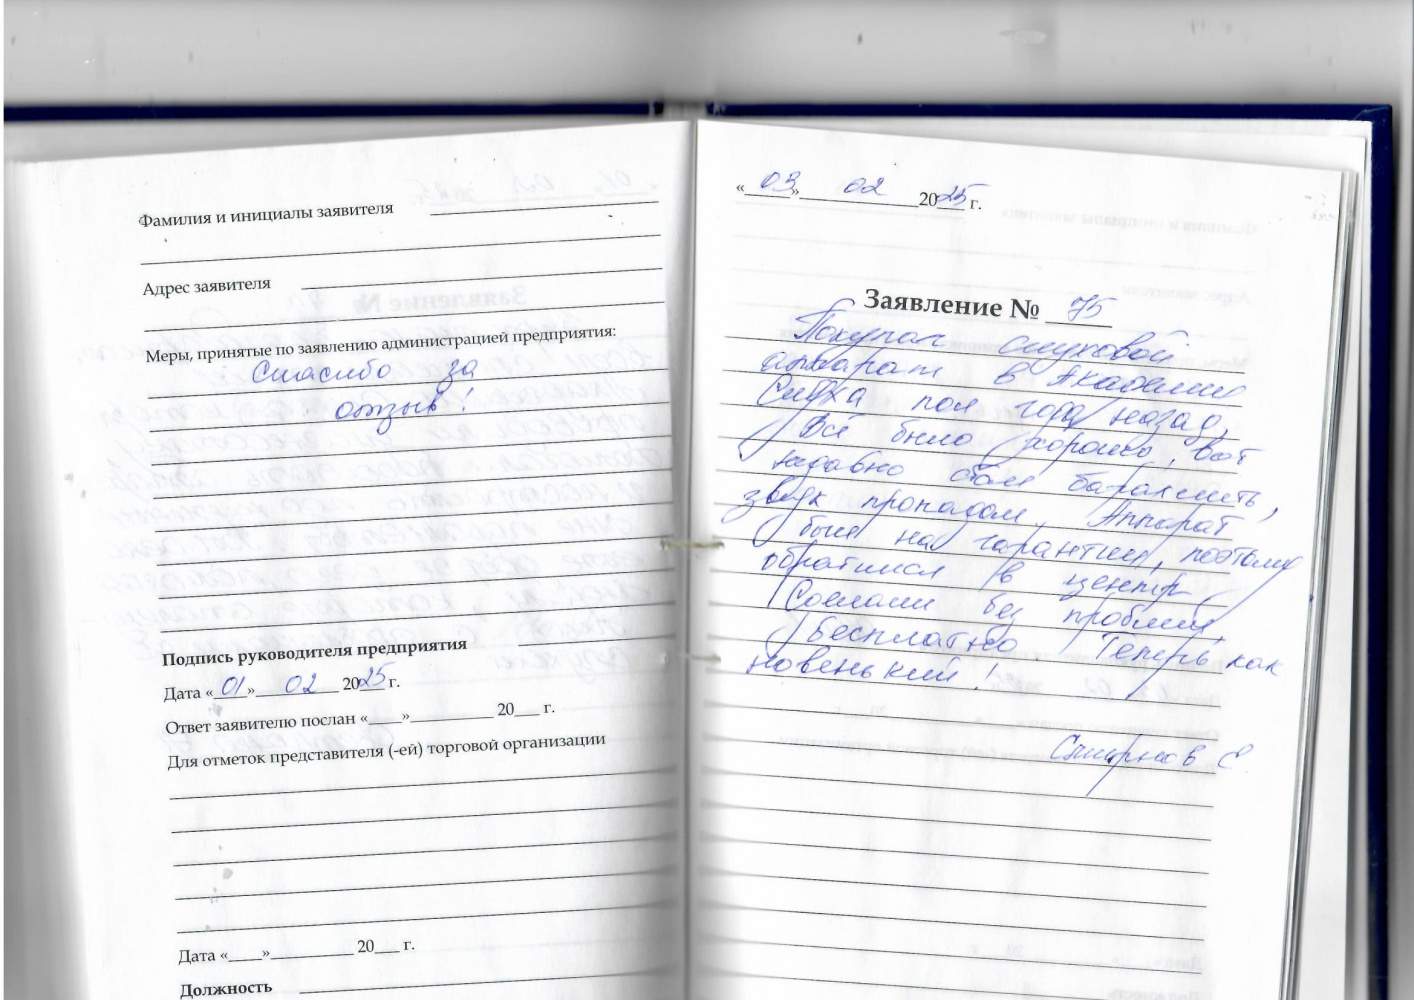 Фамилия и инициалы заявителя
Адрес заявителя
Меры, принятые по заявлению администрацией предприятия:
Спасибо за
отзыв!
Подпись руководителя предприятия
Дата «01» 02 2025 г.
Ответ заявителю послан «____»__________ 20___ г.
Для отметок представителя (-ей) торговой организации
Дата «____»__________ 20___ г.
Должность
«03» 02 2025 г.
Заявление № 75
Покупал слуховой
аппарат в Академии
Слуха пол года назад,
Всё было хорошо, вот
недавно стал барахлить,
звук пропадал, Аппарат
был на гарантии, поэтому
обратился в центр
Сделали без проблем,
Бесплатно Теперь как
новенький!
Смирнов Е